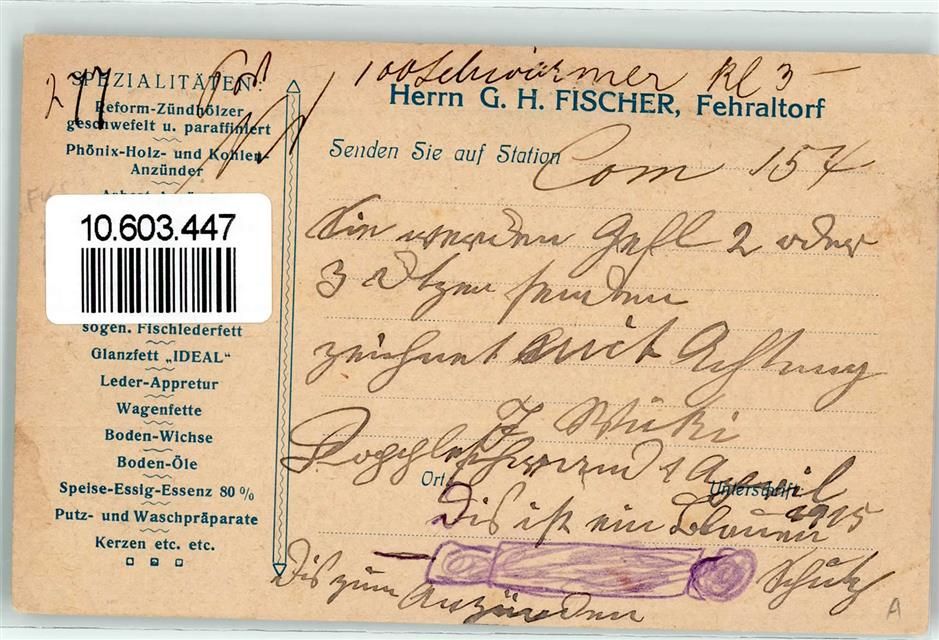 277
100 Schwärmer Kl 3 –
SPEZIALITÄTEN:
Reform-Zündhölzer
geschwefelt u. paraffiniert
Phönix-Holz- und Kohlen-
Anzünder
10.603.447
sogen. Fischlederfett
Glanzfett „IDEAL“
Leder-Appretur
Wagenfette
Boden-Wichse
Boden-Öle
Speise-Essig-Essenz 80 %
Putz- und Waschpräparate
Kerzen etc. etc.
Herrn G. H. FISCHER, Fehraltorf
Senden Sie auf Station
Com 154
Sie werden Gefl 2 oder
3 senden
zeichnet mit Achtung
J
Ort
Unterschrift
1 April
1915
Dis ist ein
Dis zum Anzünden
A